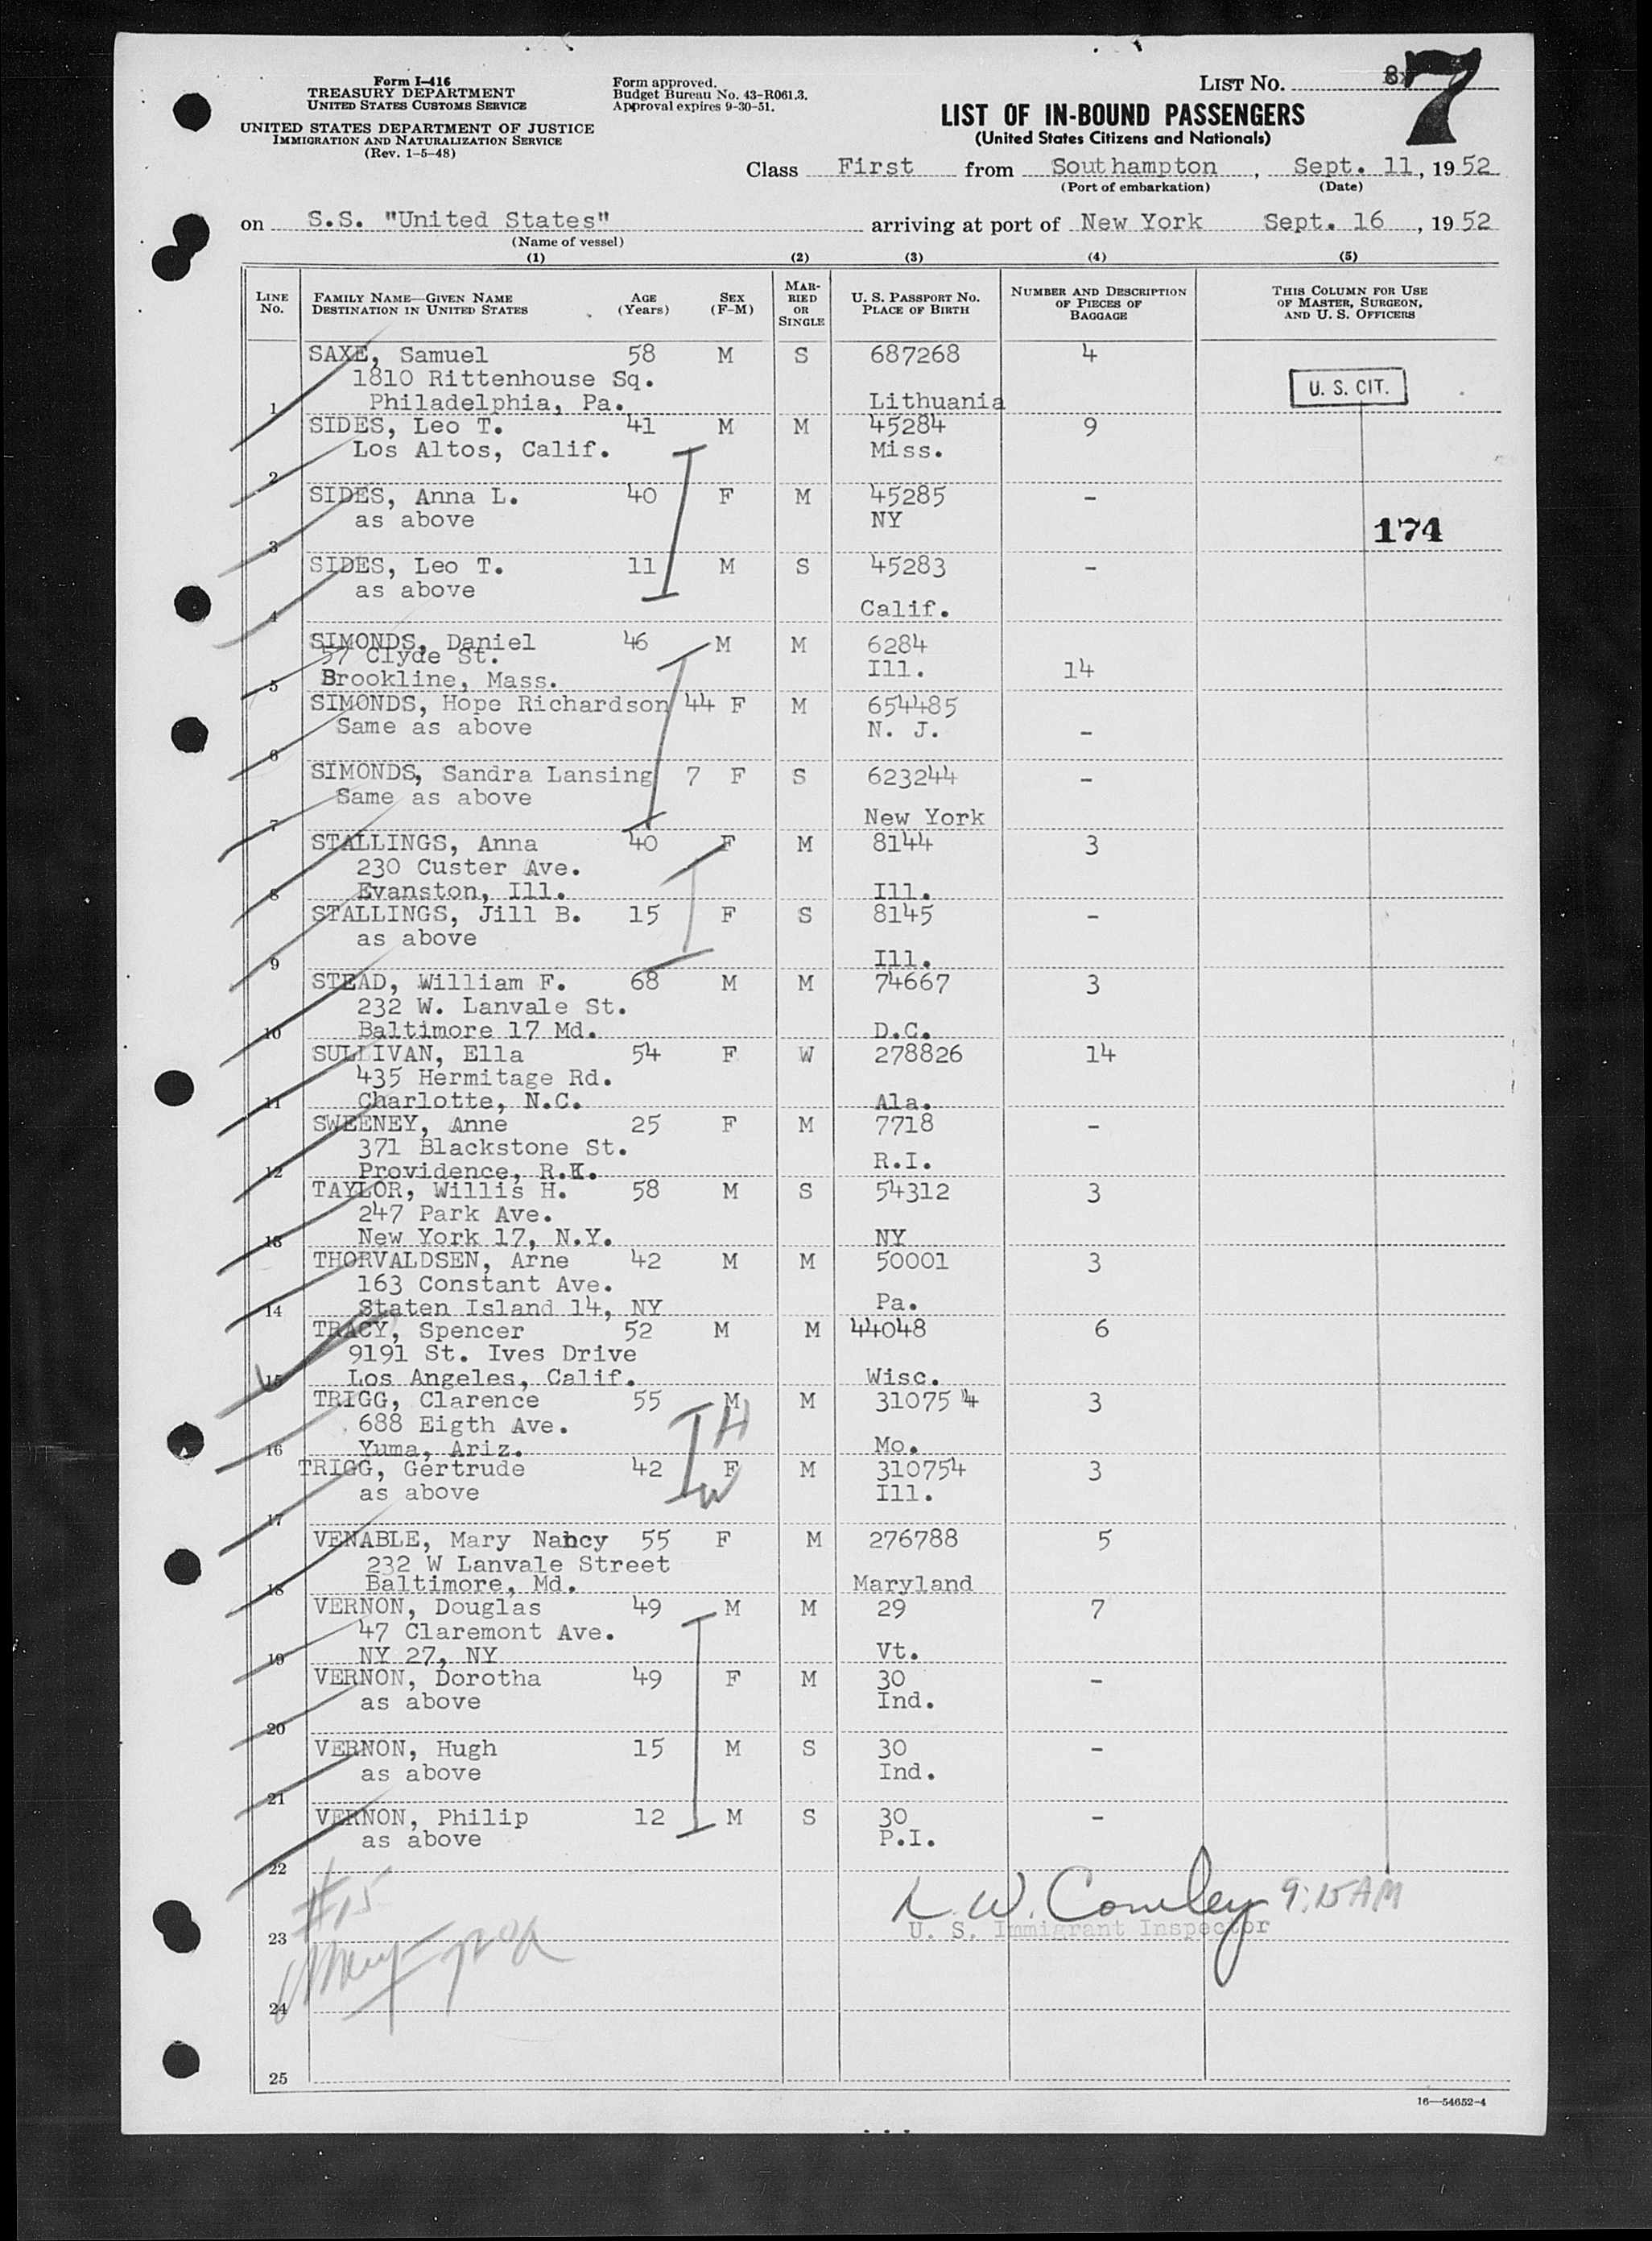 Form I-416
TREASURY DEPARTMENT
UNITED STATES CUSTOMS SERVICE
UNITED STATES DEPARTMENT OF JUSTICE
IMMIGRATION AND NATURALIZATION SERVICE
(Rev. 1-5-48)
Form approved.
Budget Bureau No. 43-R061.3.
Approval expires 9-30-51.
LIST No. 8x 7
LIST OF IN-BOUND PASSENGERS
(United States Citizens and Nationals)
Class First from Southampton, Sept. 11, 1952
(Port of embarkation) (Date)
on S.S. "United States" arriving at port of New York Sept. 16, 1952
(Name of vessel)
(1) (2) (3) (4) (5)
LINE No. FAMILY NAME—GIVEN NAME DESTINATION IN UNITED STATES AGE (Years) SEX (F-M) MARRIED OR SINGLE U. S. PASSPORT No. PLACE OF BIRTH NUMBER AND DESCRIPTION OF PIECES OF BAGGAGE THIS COLUMN FOR USE OF MASTER, SURGEON, AND U. S. OFFICERS
SAXE, Samuel 58 M S 687268 4
1810 Rittenhouse Sq. U. S. CIT.
1 Philadelphia, Pa. Lithuania
SIDES, Leo T. 41 M M 45284 9
Los Altos, Calif. Miss.
2
SIDES, Anna L. 40 F M 45285 -
as above NY 174
3
SIDES, Leo T. 11 M S 45283 -
as above
4 Calif.
SIMONDS, Daniel 46 M M 6284
57 Clyde St. Ill. 14
5 Brookline, Mass.
SIMONDS, Hope Richardson 44 F M 654485
Same as above N. J. -
6
SIMONDS, Sandra Lansing 7 F S 623244 -
Same as above
7 New York
STALLINGS, Anna 40 F M 8144 3
230 Custer Ave.
8 Evanston, Ill. Ill.
STALLINGS, Jill B. 15 F S 8145 -
as above
9 Ill.
STEAD, William F. 68 M M 74667 3
232 W. Lanvale St.
10 Baltimore 17 Md. D.C.
SULLIVAN, Ella 54 F W 278826 14
435 Hermitage Rd.
11 Charlotte, N.C. Ala.
SWEENEY, Anne 25 F M 7718 -
371 Blackstone St. R.I.
12 Providence, R.I.
TAYLOR, Willis H. 58 M S 54312 3
247 Park Ave.
13 New York 17, N.Y. NY
THORVALDSEN, Arne 42 M M 50001 3
163 Constant Ave.
14 Staten Island 14, NY Pa.
TRACY, Spencer 52 M M 44048 6
9191 St. Ives Drive
15 Los Angeles, Calif. Wisc.
TRIGG, Clarence 55 M M 310754 3
688 Eigth Ave. H
16 Yuma, Ariz. Mo.
TRIGG, Gertrude 42 F M 310754 3
as above W Ill.
17
VENABLE, Mary Nancy 55 F M 276788 5
232 W Lanvale Street
18 Baltimore, Md. Maryland
VERNON, Douglas 49 M M 29 7
47 Claremont Ave.
19 NY 27, NY Vt.
VERNON, Dorotha 49 F M 30 -
as above Ind.
20
VERNON, Hugh 15 M S 30 -
as above Ind.
21
VERNON, Philip 12 M S 30 -
as above P.I.
22
#15 9:15 AM
U. S. Immigrant Inspector
23
24
25
16—54652-4